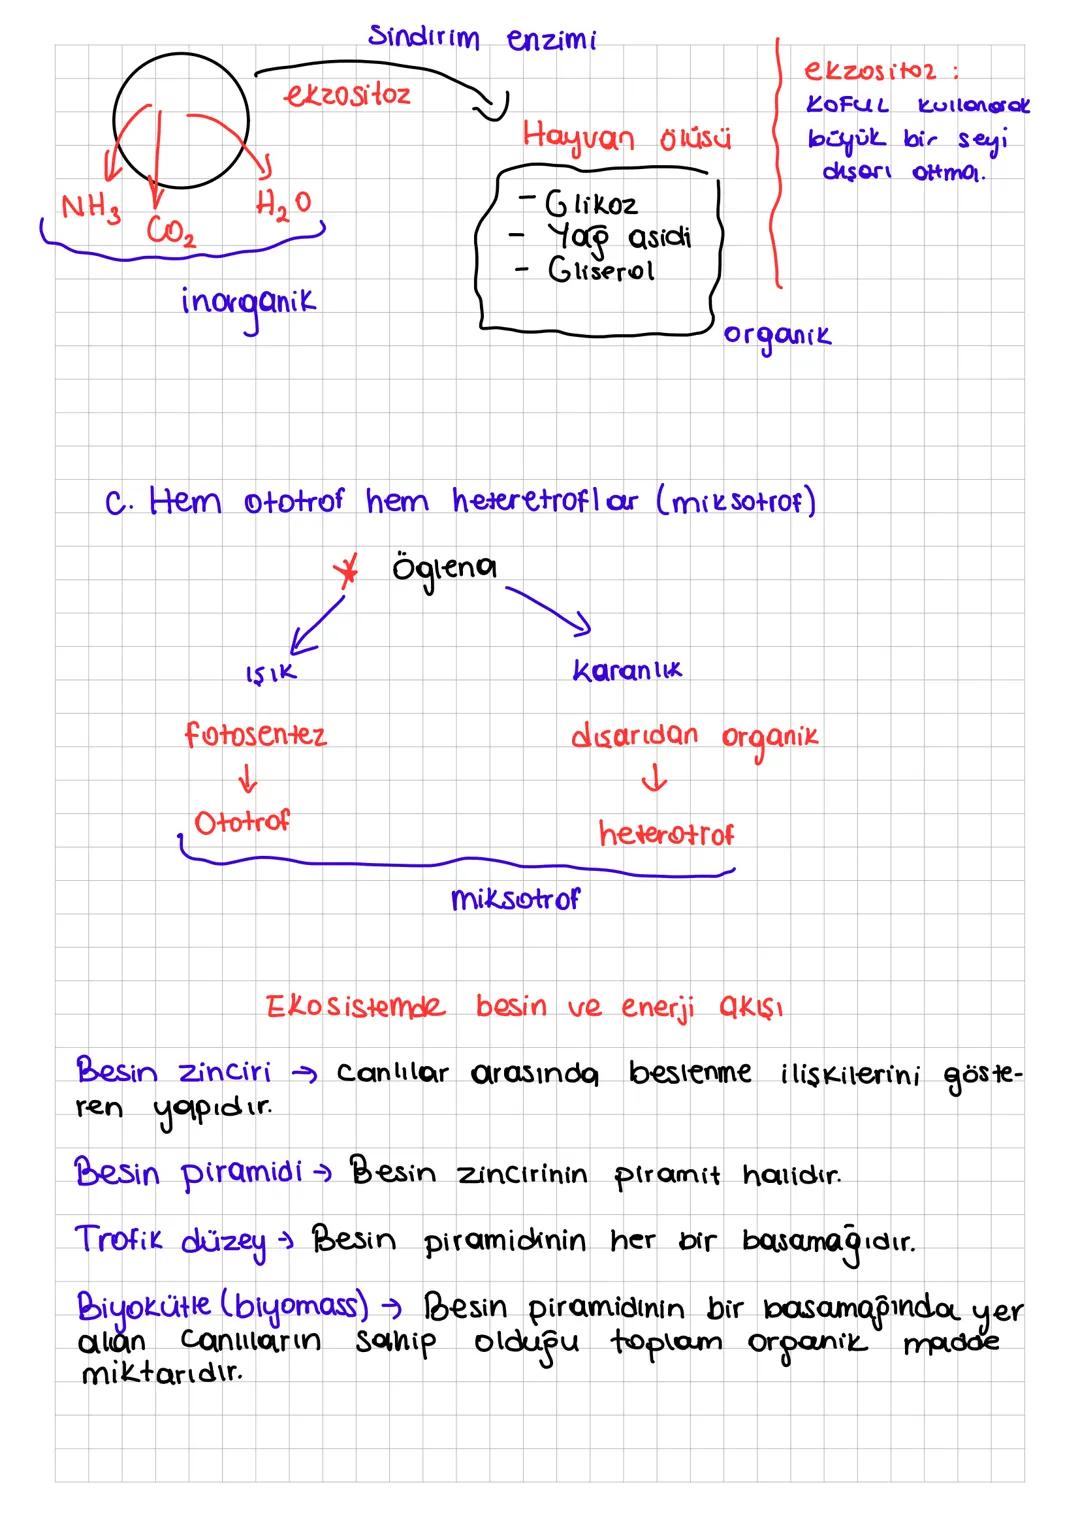 Sindirim enzimi
ekzositoz
Hayvan ölüsü
NH3
CO2
H2O
inorganik
- Glikoz
- Yağ asidi
- Gliserol
organik
ekzositoz :
Koful kullanarak
büyük bir seyi
dışarı atma.
C. Hem ototrof hem heteretroflar (miksotrof)
Öglena
ışık
Karanlık
fotosentez
dısarıdan organik
Ototrof
heterotrof
miksotrof
Ekosistemde besin ve enerji akışı
Besin zinciri → Canlılar arasında beslenme ilişkilerini göste-
ren yapıdır.
Besin piramidi → Besin zincirinin piramit halidir.
Trofik düzey → Besin piramidinin her bir basamağıdır.
Biyokütle (biyomass) → Besin piramidinin bir basamağında yer
alan canlıların sahip olduğu toplam organik madde
miktarıdır.